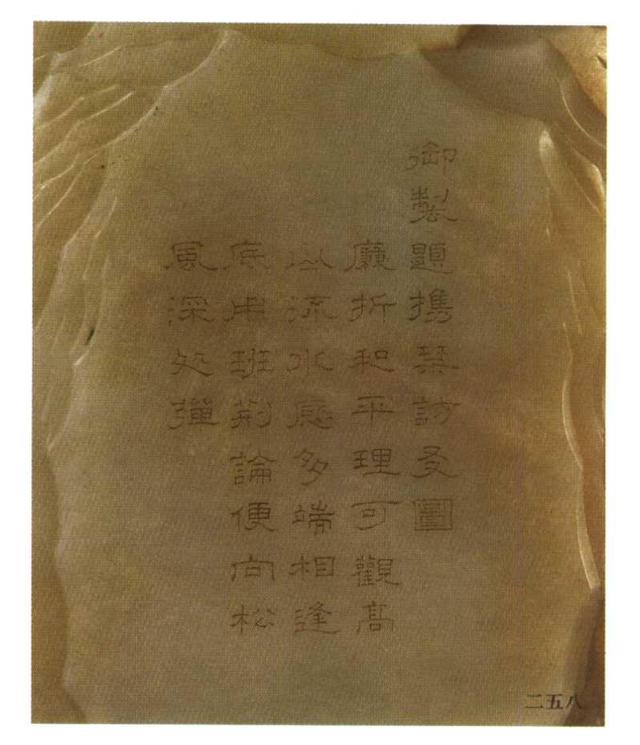 御製題攜琴訪友圖
廉折和平理可觀高
山流水意多端相逢
底用班荆論便向松
風深处彈
二五八